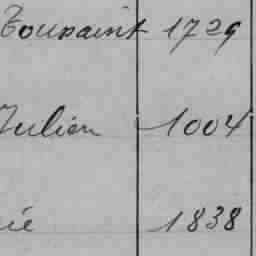 Toussaint 1729
Julien 1004
ie 1838